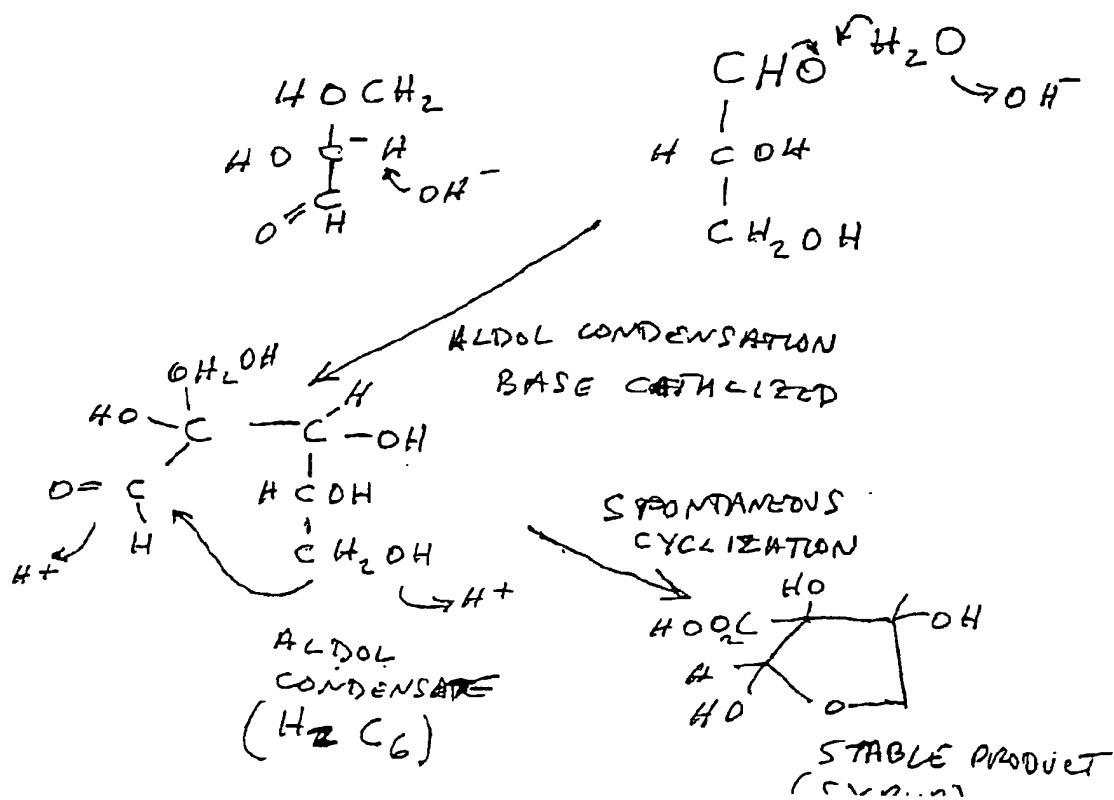 HOCH₂
HO C – H
OH⁻
O= C
H
CHO H₂O
OH⁻
H C OH
CH₂OH
ALDOL CONDENSATION
BASE CATHCLIZED
CH₂OH
HO – C – C – H
– OH
O= C
H
H+
H C OH
CH₂OH
H+
ALDOL
CONDENSATE
C₆)
SPONTANEOUS
CYCLIZATION
HO
OH
H
HO
O
STABLE PRODUCT